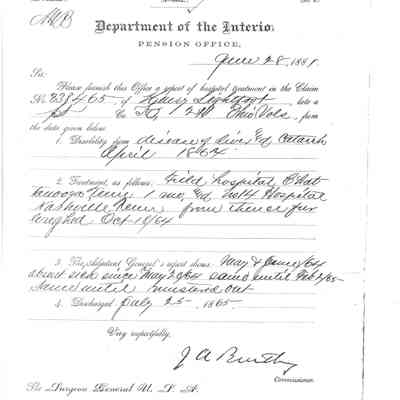 Department of the Interior,
PENSION OFFICE,
June 28, 1881
Sir:
Please furnish this Office a report of hospital treatment in the Claim
No. 838465, of Henry Lightfoot, late a
Co. 12 Ohio Vols., from
the date given below.
1. Disability from disease of liver & Catarrh
April 1864
2. Treatment as follows: Field hospital Chat
tanooga Tenn, 1 mo, Hospital
Nashville Tenn, from thence fur
loughed Oct 1/64
3. The Adjutant General's report shows: May & June /64
absent sick since May 2/64 same until Feb /65
same until mustered out
4. Discharged July 25, 1865.
Very respectfully,
Commissioner.
The Surgeon General U. S. A.